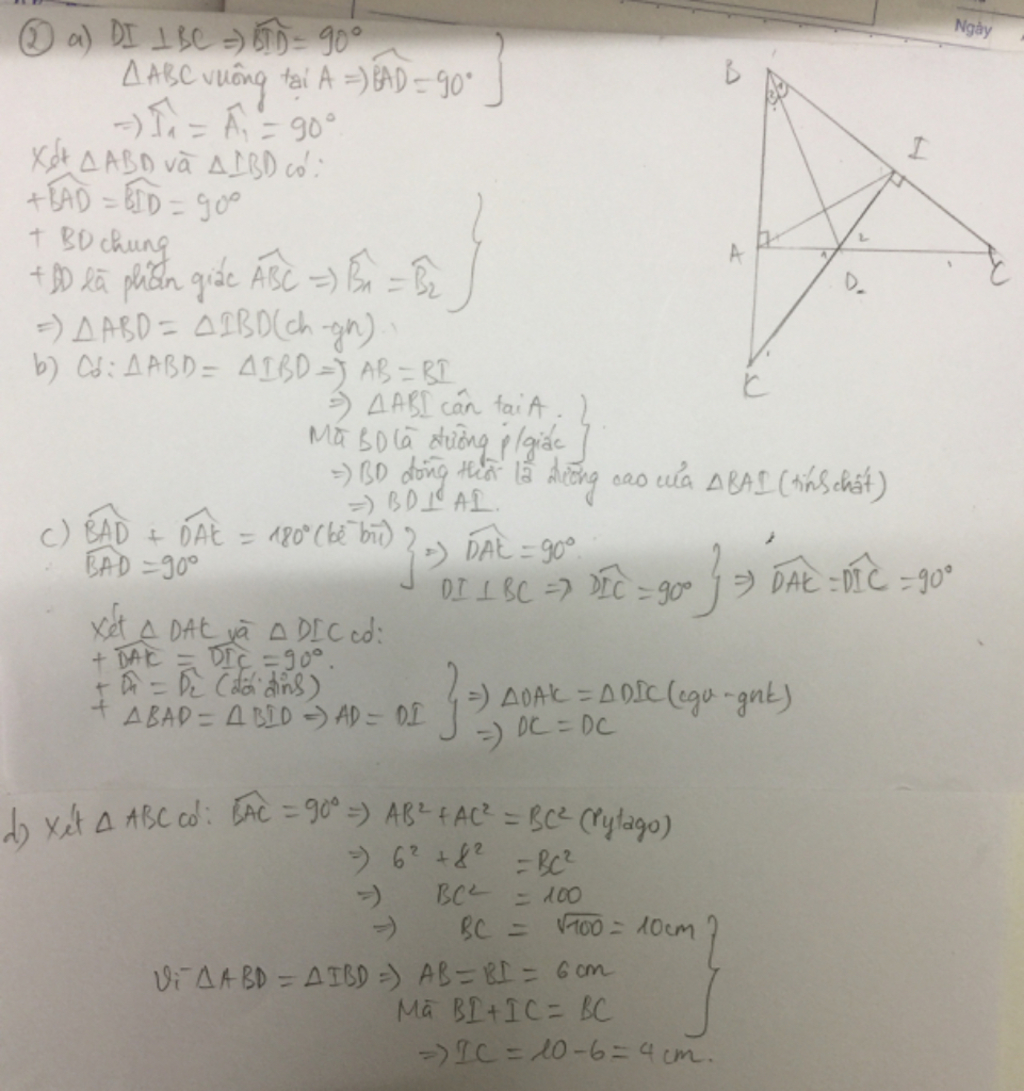 Ngày
② a) DI ⊥ BC => \widehat{BID} = 90°
ΔABC vuông tại A => \widehat{BAD} = 90°
=> \widehat{I_1} = \widehat{A_1} = 90°
Xét ΔABD và ΔIBD có:
+ \widehat{BAD} = \widehat{BID} = 90°
+ BD chung
+ BD là phân giác \widehat{ABC} => \widehat{B_1} = \widehat{B_2}
=> ΔABD = ΔIBD (ch - gn).
b) Có: ΔABD = ΔIBD => AB = BI
=> ΔABI cân tại A.
Mà BD là đường p/giác
=> BD đồng thời là đường cao của ΔBAI (tính chất)
=> BD ⊥ AI.
B
1
2
I
A
1
2
D
C
K
c) \widehat{BAD} + \widehat{DAK} = 180° (kề bù)
\widehat{BAD} = 90°
=> \widehat{DAK} = 90°
DI ⊥ BC => \widehat{DIC} = 90°
=> \widehat{DAK} = \widehat{DIC} = 90°
Xét Δ DAK và Δ DIC có:
+ \widehat{DAK} = \widehat{DIC} = 90°.
+ \widehat{D_1} = \widehat{D_2} (đối đỉnh)
+ ΔBAD = ΔBID => AD = DI
=> ΔDAK = ΔDIC (cgv - gnk)
=> DC = DC
d) Xét Δ ABC có: \widehat{BAC} = 90° => AB² + AC² = BC² (Pytago)
=> 6² + 8² = BC²
=> BC² = 100
=> BC = √100 = 10cm
Vì ΔABD = ΔIBD => AB = BI = 6cm
Mà BI + IC = BC
=> IC = 10 - 6 = 4cm.